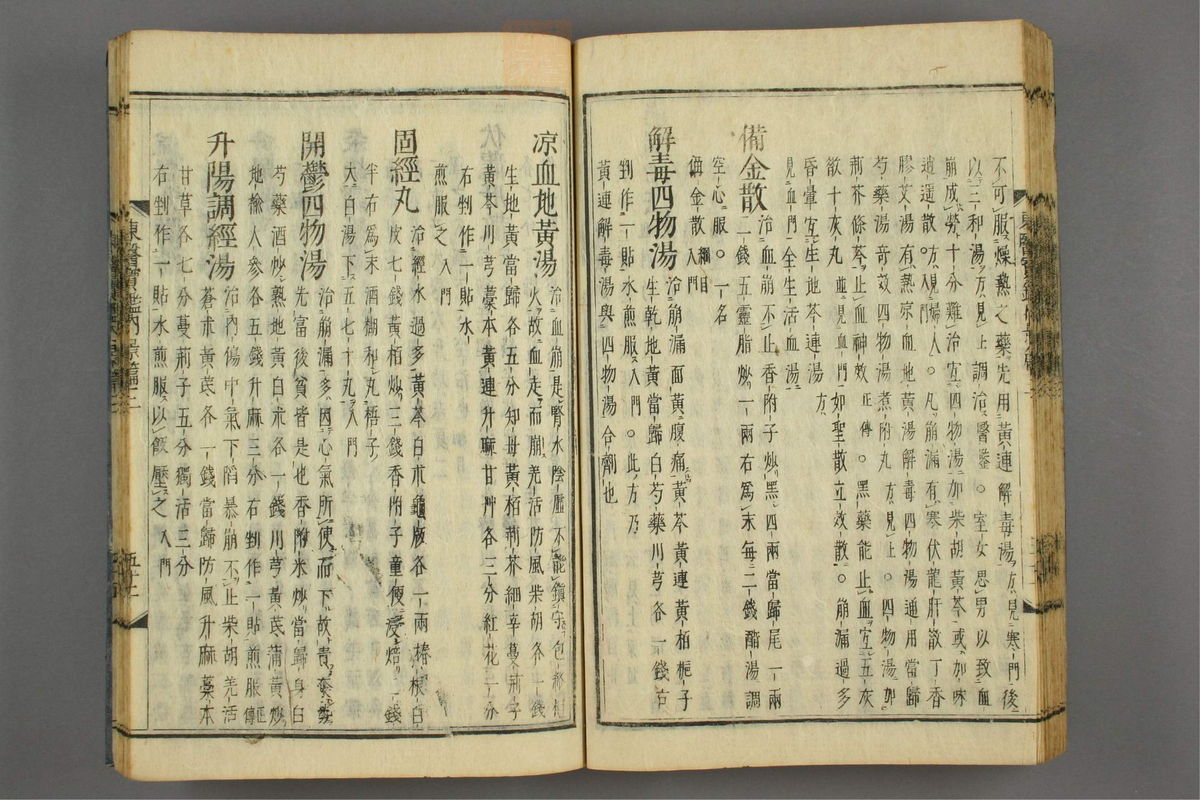 不可服燥熱之藥先用黃連解毒湯方見寒門後
以三和湯方見上調治醫鑒○室女思男以致血
崩成勞十分難治宜四物湯加柴胡黃芩或加味
逍遙散方見婦人門○凡崩漏有寒伏龍肝散丁香
膠艾湯有熱凉血地黃湯解毒四物湯通用當歸
芍藥湯奇效四物湯煮附丸方見上○四物湯加
荊芥條芩止血神效正傳○黑藥能止血宜五灰
散十灰丸並見血門如聖散立效散○崩漏過多
昏暈宜生地芩連湯方
見血門全生活血湯
備金散治血崩不止香附子炒黑四兩當歸尾一兩
二錢五靈脂炒一兩右爲末每二錢醋湯調
空心服○一名
備金散綱目
入門
解毒四物湯治崩漏面黃腹痛黃芩黃連黃栢梔子
生乾地黃當歸白芍藥川芎各一錢右
剉作一貼水煎服入門○此方乃
黃連解毒湯與四物湯合劑也
凉血地黃湯治血崩是腎水陰虛不能鎮守包絡相
火故血走而崩羌活防風柴胡各一錢
生地黃當歸各五分知母黃栢荊芥細辛蔓荊子
黃芩川芎藁本黃連升麻甘艸各三分紅花一分
右剉作一貼水
煎服之入門
固經丸治經水過多黃芩白朮龜版各一兩椿根白
皮七錢黃栢炒三錢香附子童便浸焙二錢
半右爲末酒糊和丸梧子
大白湯下五七十丸入門
開鬱四物湯治崩漏多因心氣所使而下故貴奪勢
先富後貧皆是也香附米炒當歸身白
芍藥酒炒熟地黃白朮各一錢川芎黃芪蒲黃炒
地楡人參各五錢升麻三分右剉作一貼煎服正傳
升陽調經湯治內傷中氣下陷暴崩不止柴胡羌活
蒼朮黃芪各一錢當歸防風升麻藁本
甘草各七分蔓荊子五分獨活三分
右剉作一貼水煎服以飯壓之入門
東醫寶鑑內景篇三
五十二